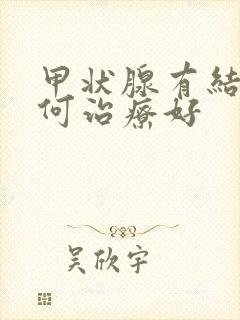 甲状腺有結
何治療好
吴欣宇